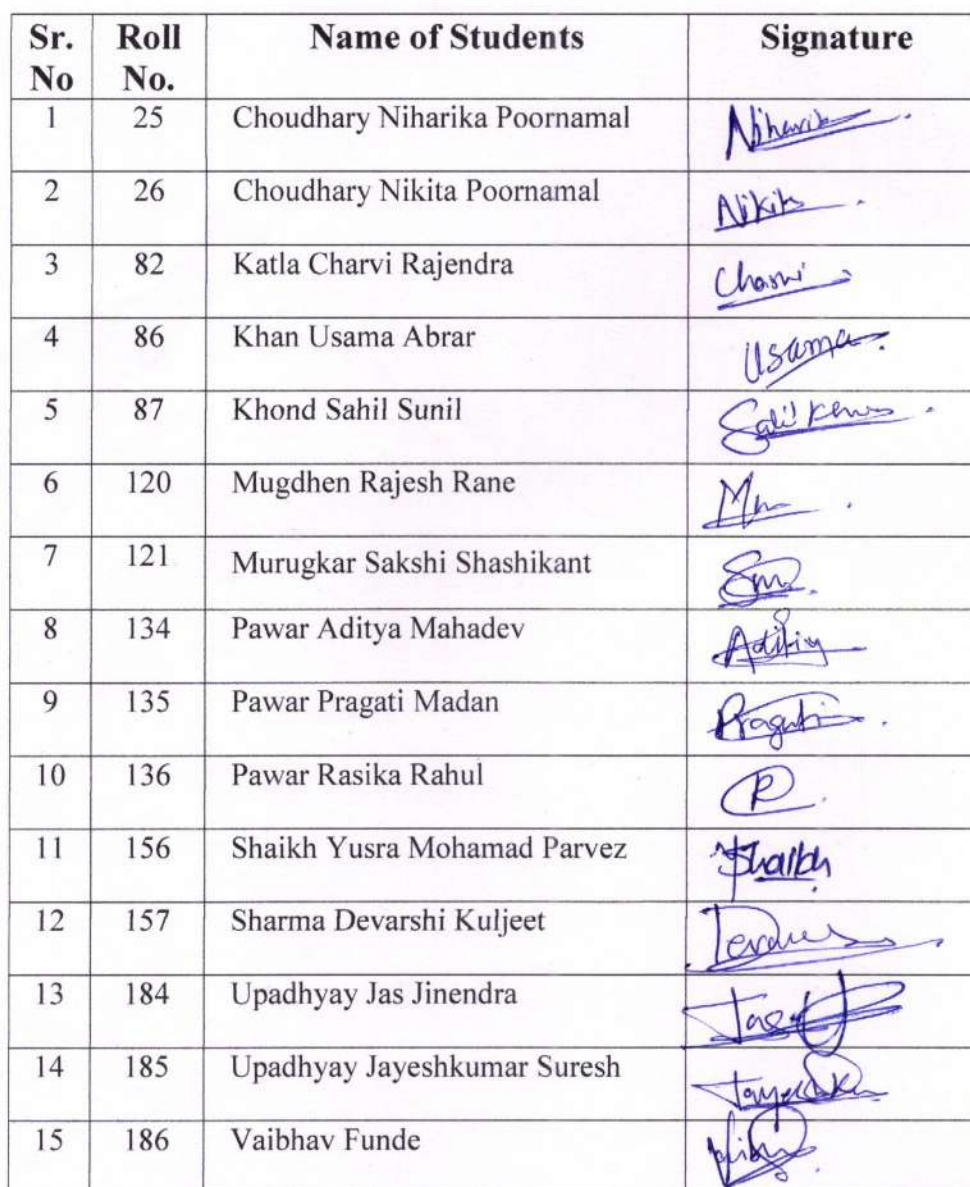 Sr. No Roll No. Name of Students Signature
1 25 Choudhary Niharika Poornamal Niharika
2 26 Choudhary Nikita Poornamal Nikita
3 82 Katla Charvi Rajendra Charvi
4 86 Khan Usama Abrar Usama
5 87 Khond Sahil Sunil
6 120 Mugdhen Rajesh Rane
7 121 Murugkar Sakshi Shashikant
8 134 Pawar Aditya Mahadev
9 135 Pawar Pragati Madan Pragati
10 136 Pawar Rasika Rahul R
11 156 Shaikh Yusra Mohamad Parvez Shaikh
12 157 Sharma Devarshi Kuljeet
13 184 Upadhyay Jas Jinendra Jas
14 185 Upadhyay Jayeshkumar Suresh
15 186 Vaibhav Funde